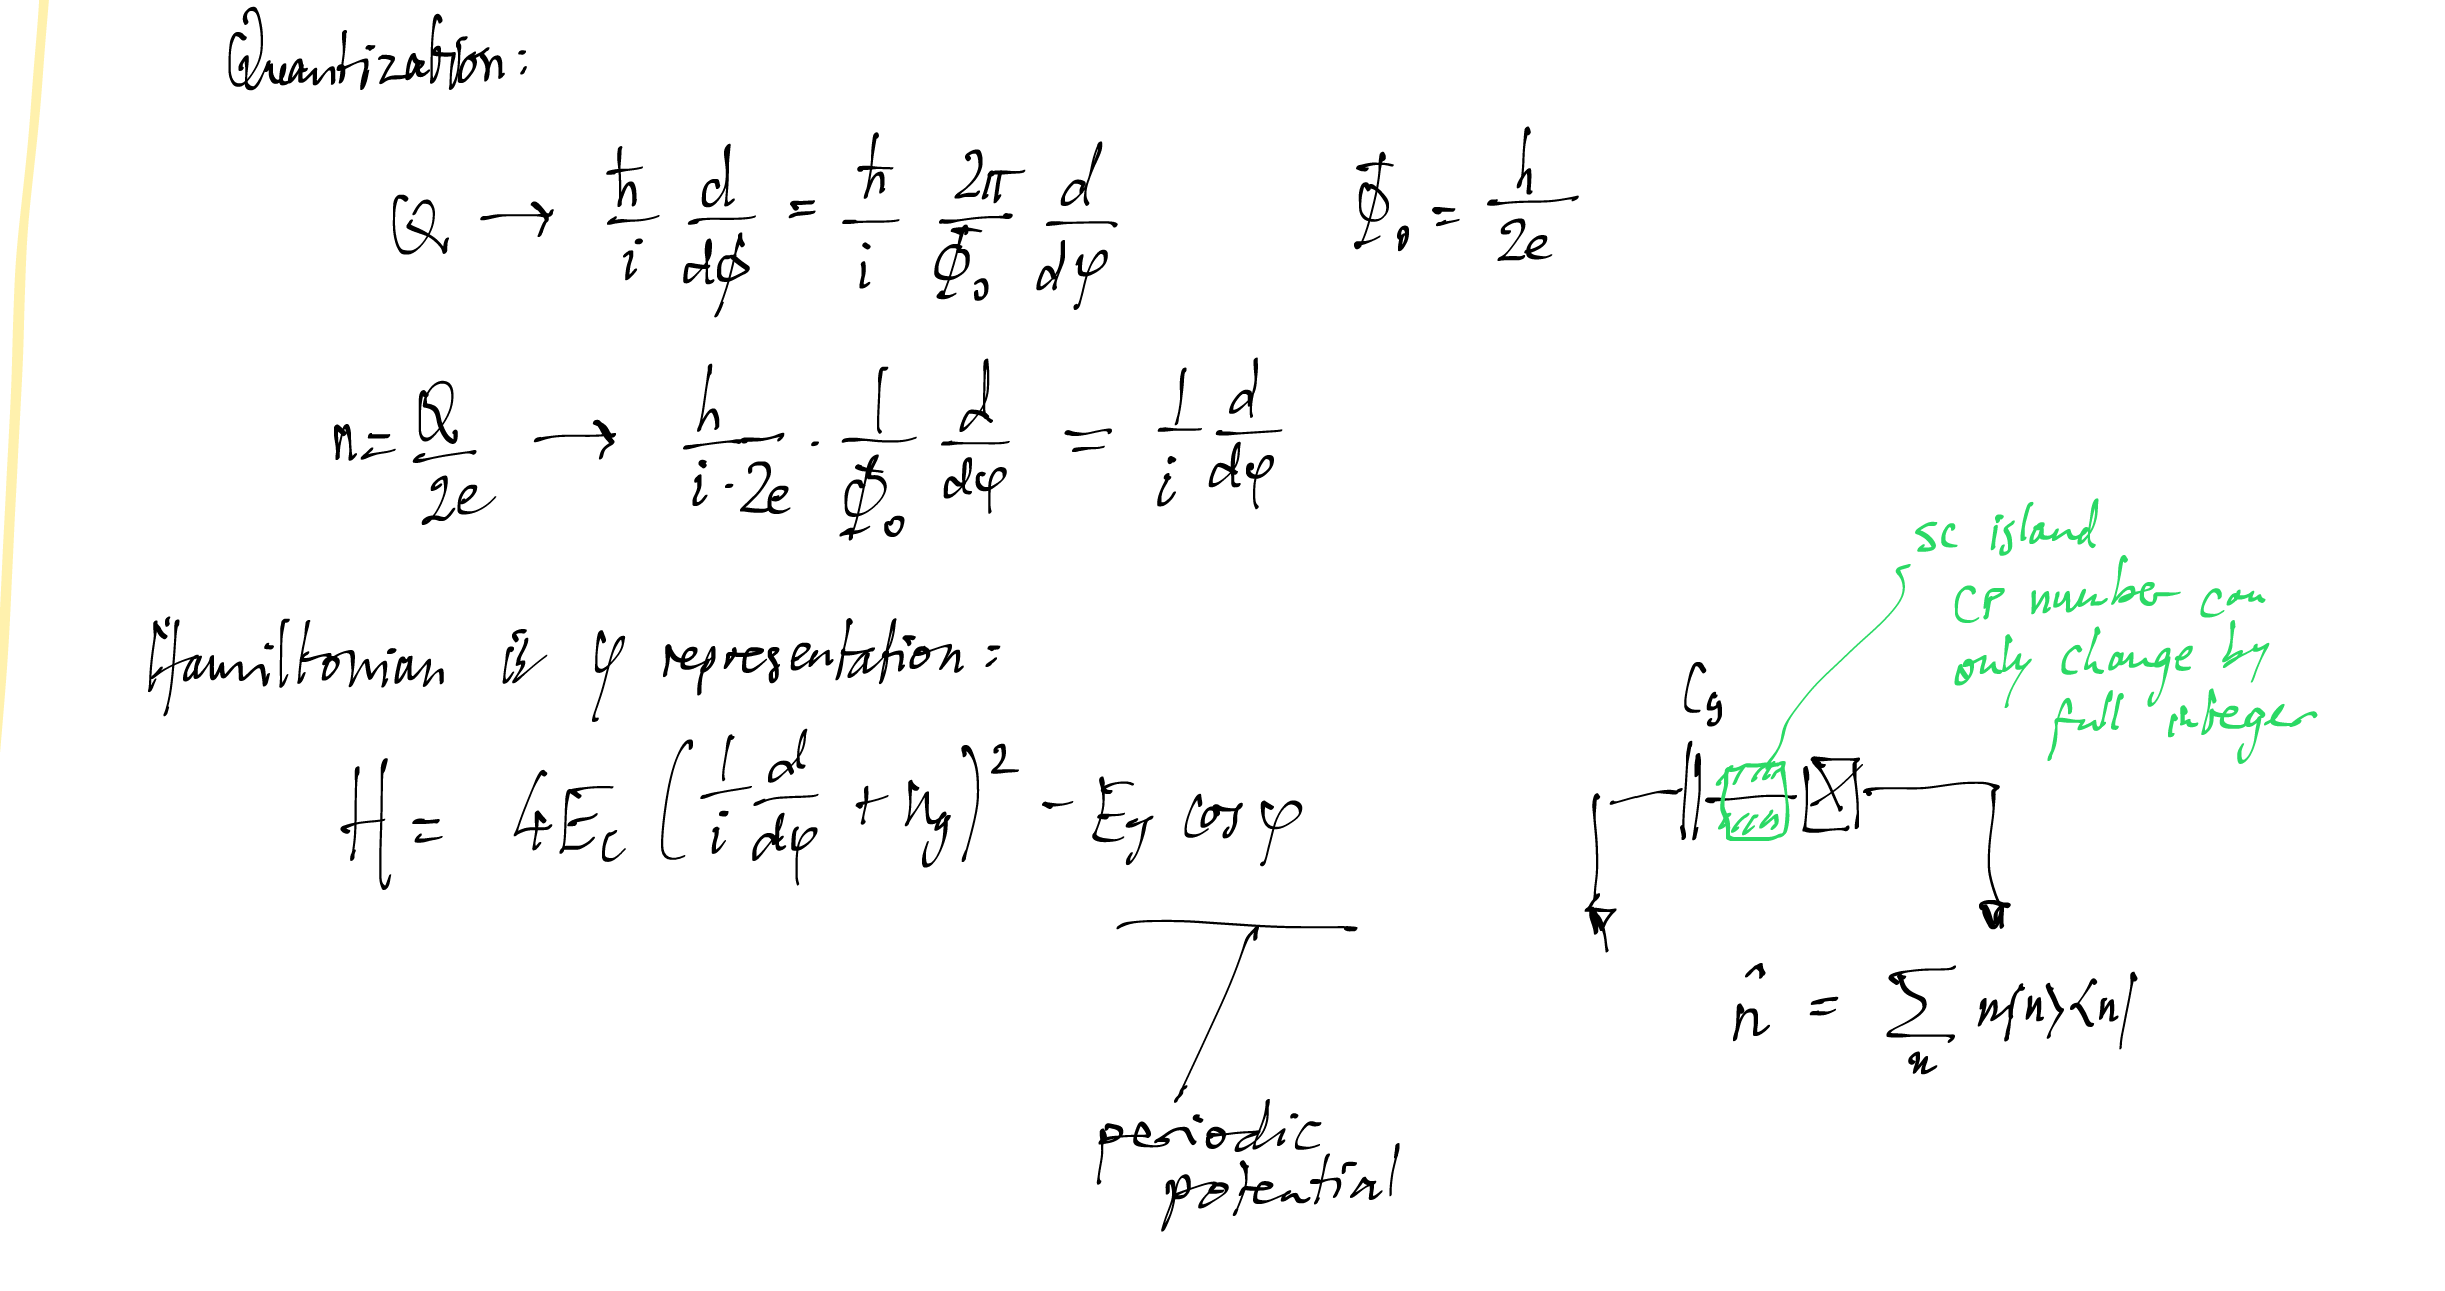 Quantization:
Q → ħ/i d/dϕ = ħ/i 2π/Φ₀ d/dφ
Φ₀ = h/2e
n = Q/2e → h/(i·2e) · 1/Φ₀ d/dφ = 1/i d/dφ
Hamiltonian is φ representation:
H = 4E_C (1/i d/dφ + n_g)² - E_J cos φ
periodic
potential
sc island
CP number can
only change by
full integer
C_g
n̂ = Σ_n n|n><n|